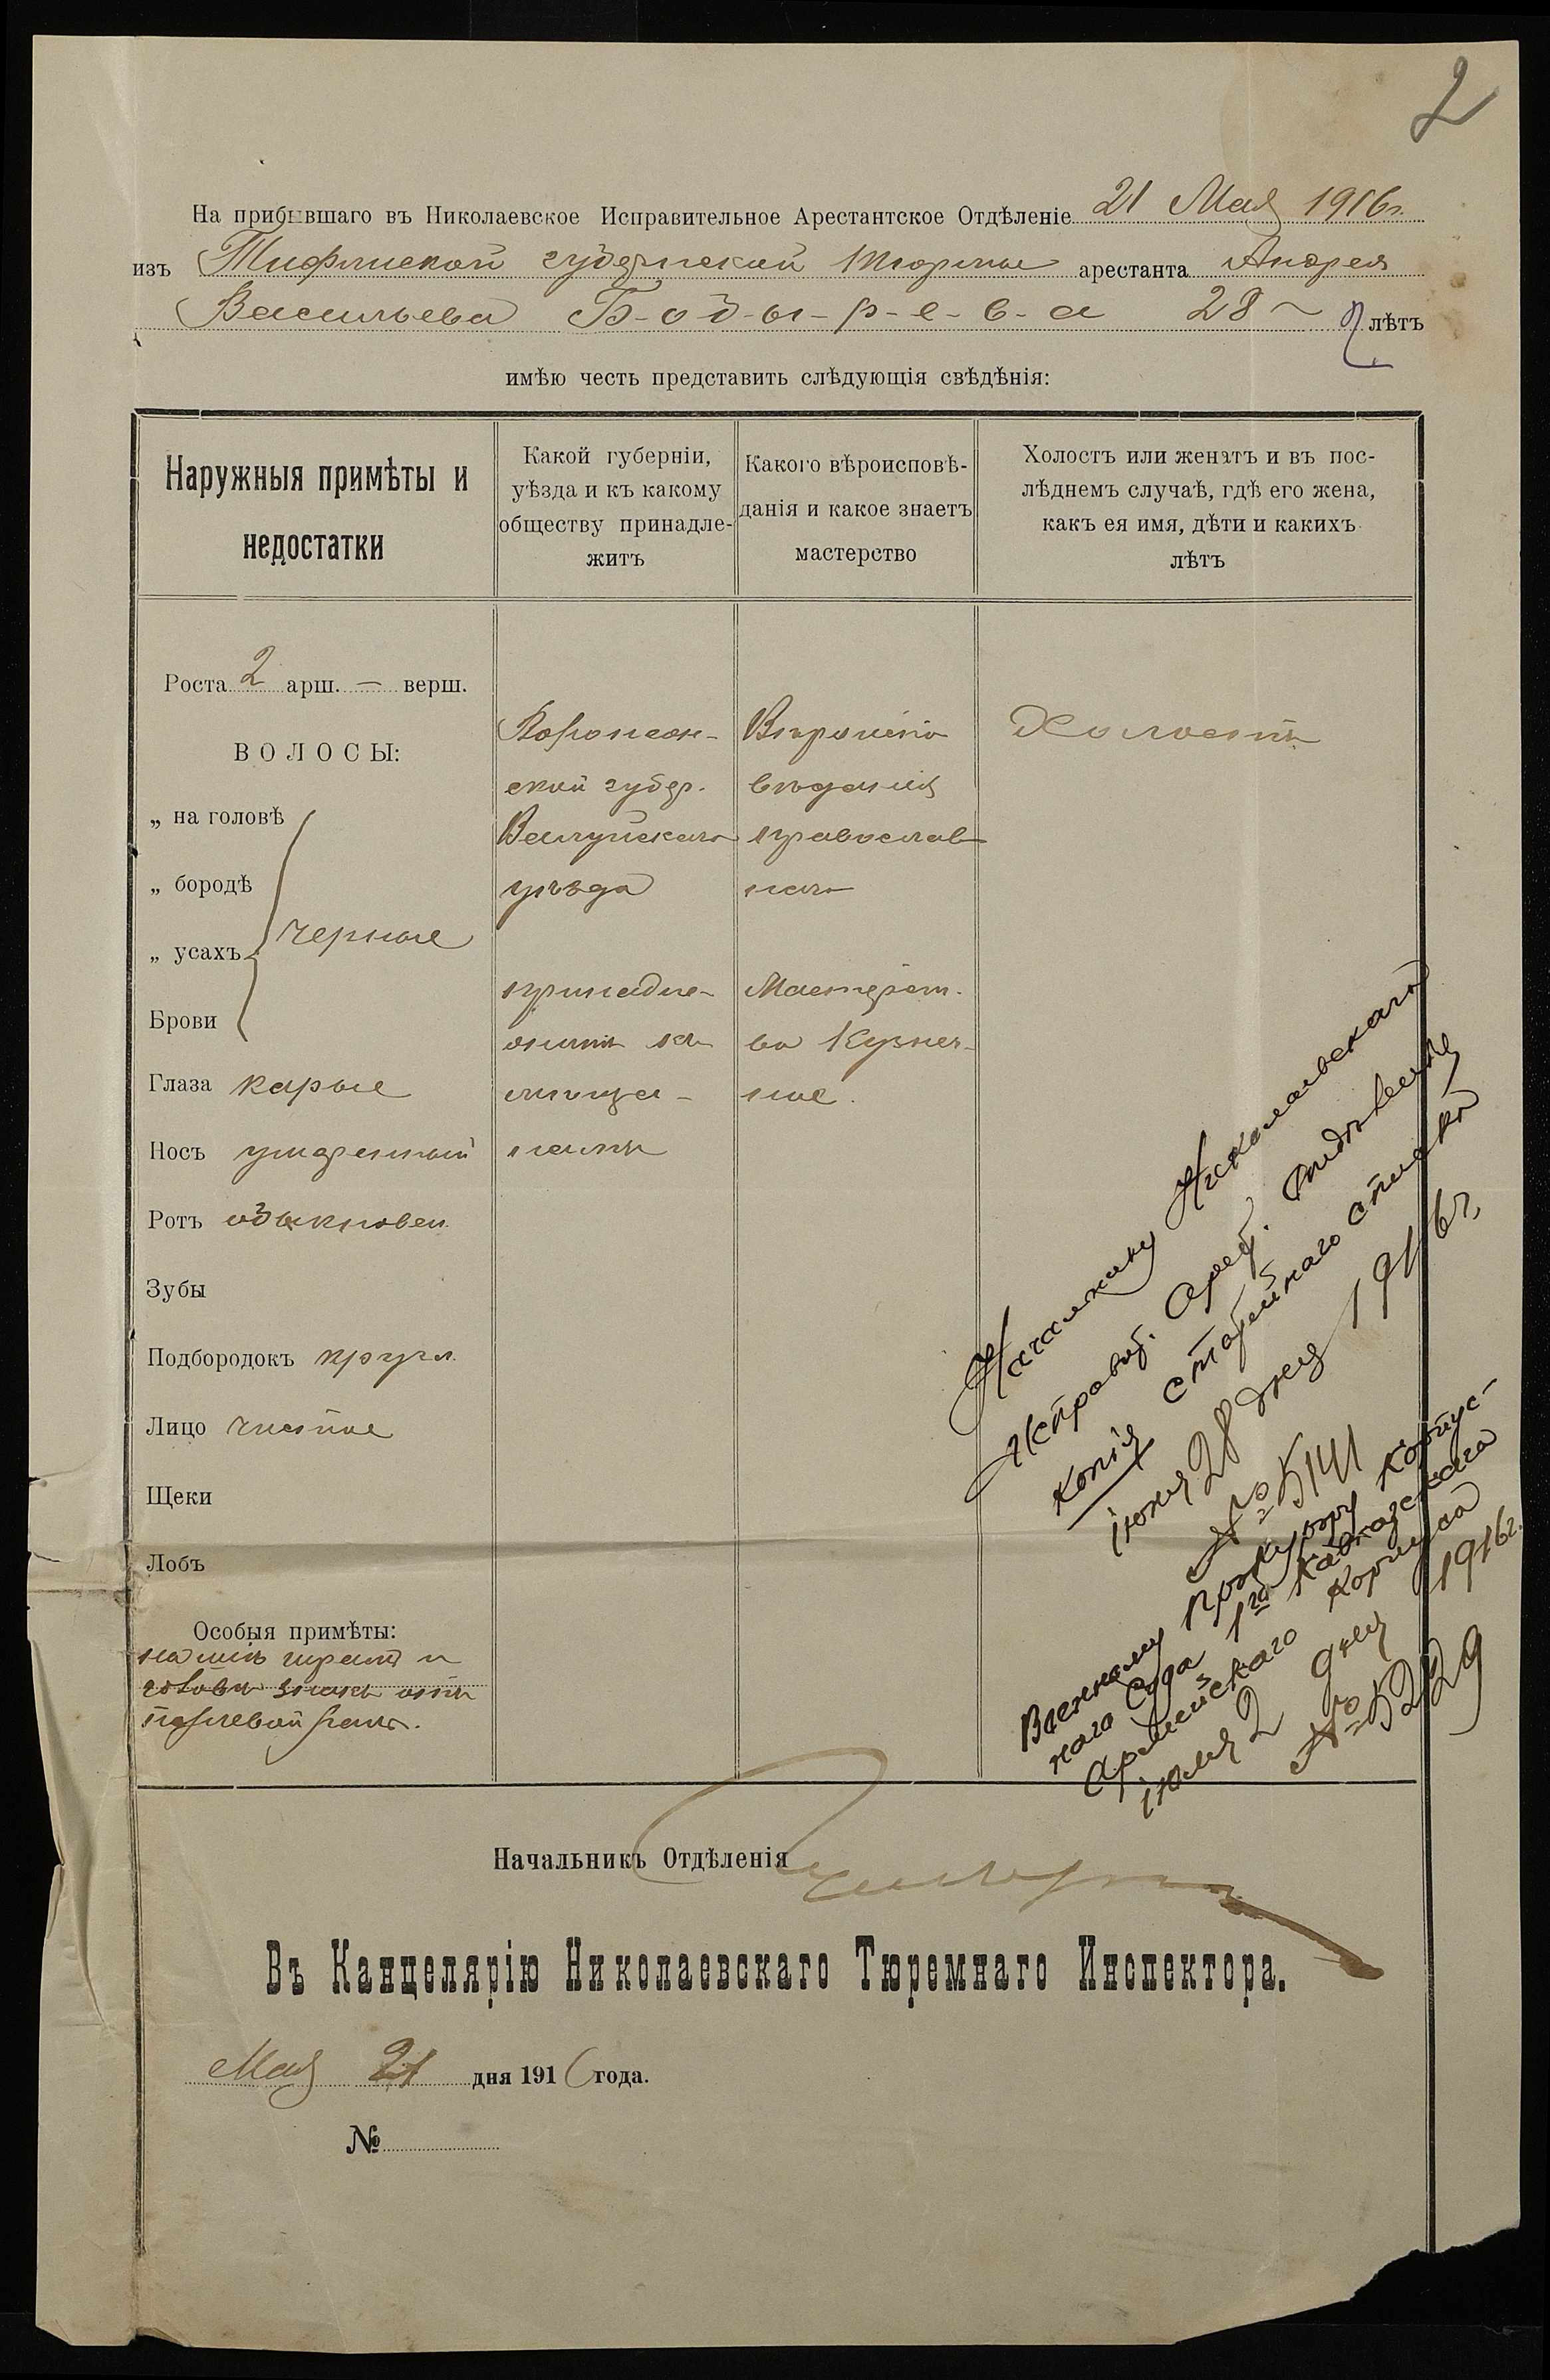 2
На прибывшаго въ Николаевское Исправительное Арестантское Отдѣленіе 21 Мая 1916г.
изъ Тифлиской губернской тюрьмы арестанта Андрея
Васильева Б-о-д-ы-р-е-в-а 28 лѣтъ
имѣю честь представить слѣдующія свѣдѣнія:
Наружныя примѣты и
недостатки
Какой губерніи,
уѣзда и къ какому
обществу принадле-
житъ
Какого вѣроисповѣ-
данія и какое знаетъ
мастерство
Холостъ или женатъ и въ пос-
лѣднемъ случаѣ, гдѣ его жена,
какъ ея имя, дѣти и какихъ
лѣтъ
Роста 2 арш. — верш.
ВОЛОСЫ:
„ на головѣ
„ бородѣ
„ усахъ
Брови
черные
Глаза карые
Носъ умѣренный
Ротъ обыкновен.
Зубы
Подбородокъ кругл.
Лицо чистое
Щеки
Лобъ
Особыя примѣты:
на шеѣ шрамъ и
знакъ отъ
раны.
Воронеж-
ской губер.
Валуйскаго
уѣзда
принадле-
житъ къ
мѣща-
намъ
Вѣроиспо
вѣданія
православ
наго
Мастерст-
во Кузнеч-
ное.
Холостъ
Начальнику Николаевскаго
Исправ. Арест. Отдѣленія
Копія статейнаго списка
іюня 28 дня 1916г.
№ 5141
Военному прокурору Корпус-
наго Суда 1го Кавказскаго
Армейскаго Корпуса
іюля 2 дня 1916г.
№ 5229
Начальникъ Отдѣленія
Въ Канцелярію Николаевскаго Тюремнаго Инспектора.
Мая 21 дня 1916 года.
№